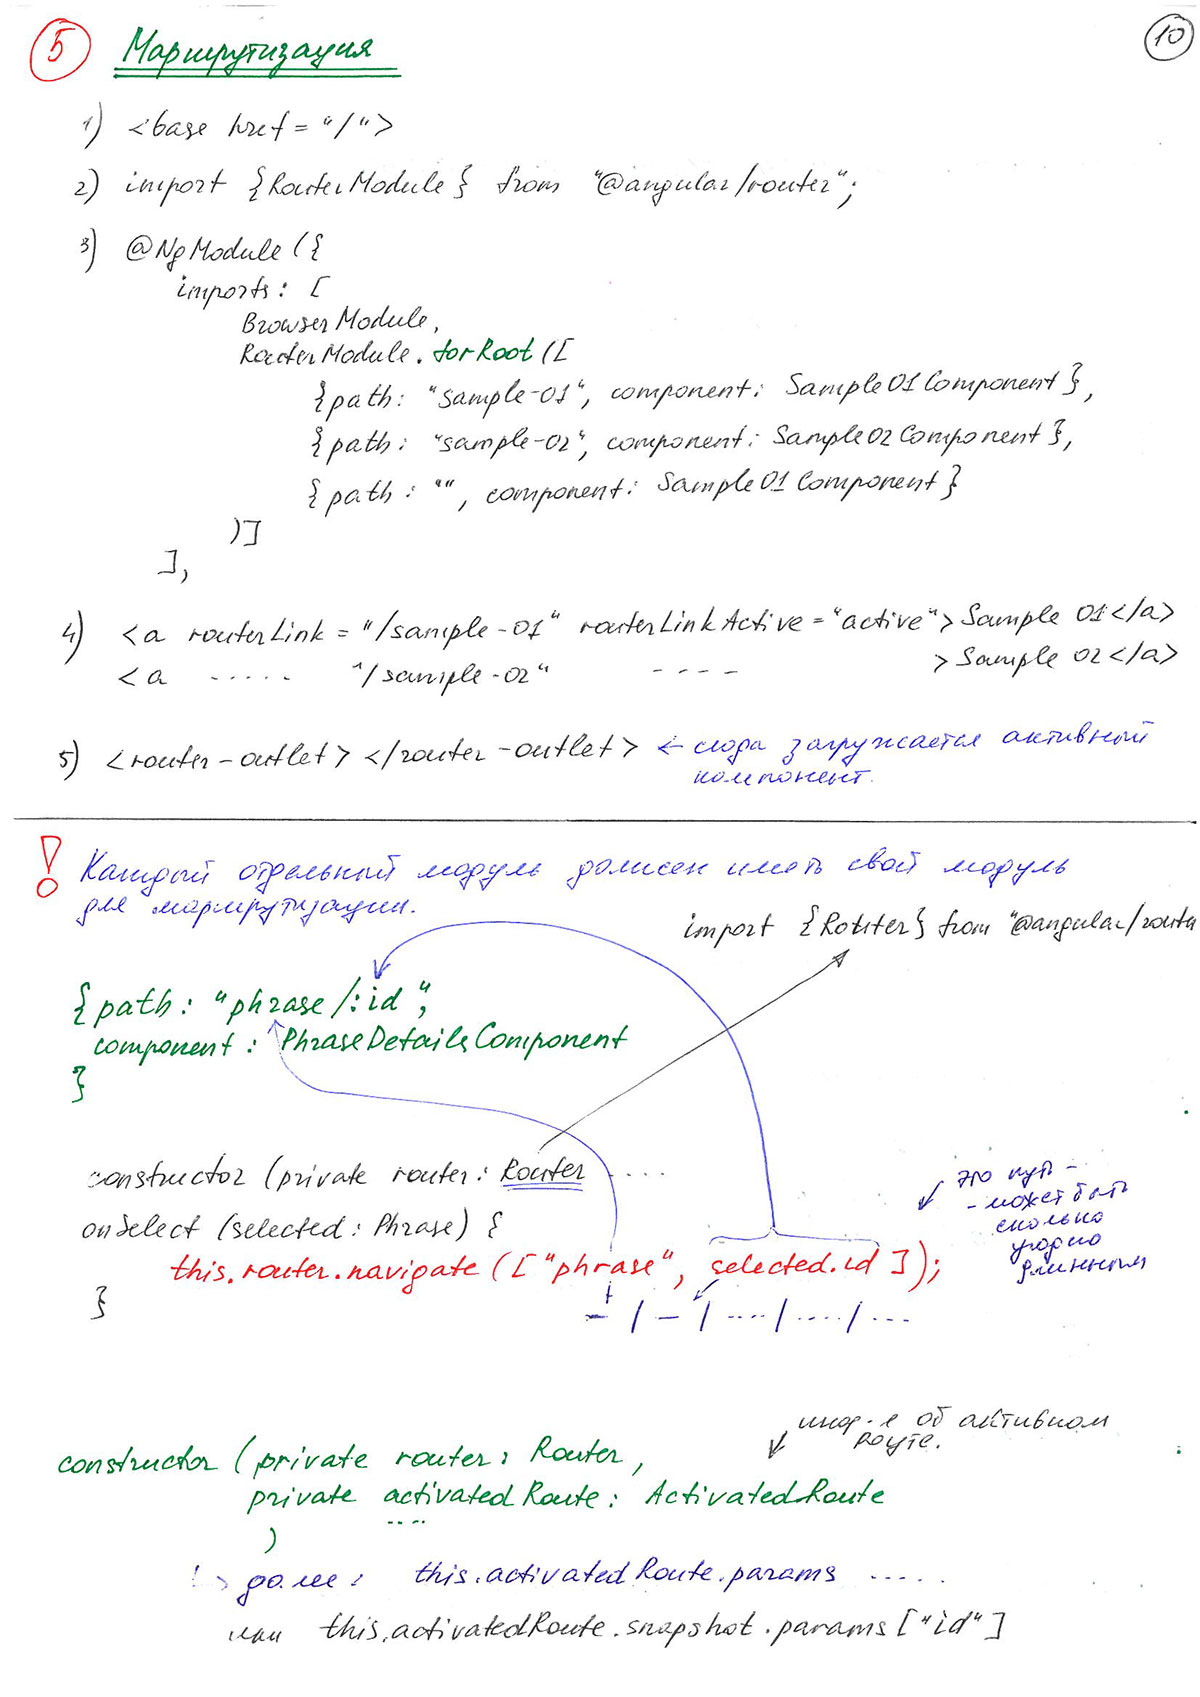 5 Маршрутизация 10
1) <base href = "/">
2) import {RouterModule} from "@angular/router";
3) @NgModule({
imports: [
BrowserModule,
RouterModule.forRoot([
{path: "sample-01", component: Sample01Component},
{path: "sample-02", component: Sample02Component},
{path: "", component: Sample01Component}
)]
],
4) <a routerLink = "/sample-01" routerLinkActive = "active">Sample 01</a>
<a ..... "/sample-02" ---- >Sample 02</a>
5) <router-outlet></router-outlet> ← сюда загружается активный
компонент.
! Каждый отдельный модуль должен иметь свой модуль
для маршрутизации.
import {Router} from "@angular/route
{path: "phrase/:id",
component: PhraseDetailsComponent
}
constructor (private router: Router .....
onSelect (selected: Phrase) {
this.router.navigate(["phrase", selected.id]);
}
это путь -
- может быть
сколько
угодно
длинным
- / - / .... / .... / ...
инф-я об активном
роуте.
constructor (private router: Router,
private activatedRoute: ActivatedRoute
)
далее: this.activatedRoute.params .....
или this.activatedRoute.snapshot.params["id"]